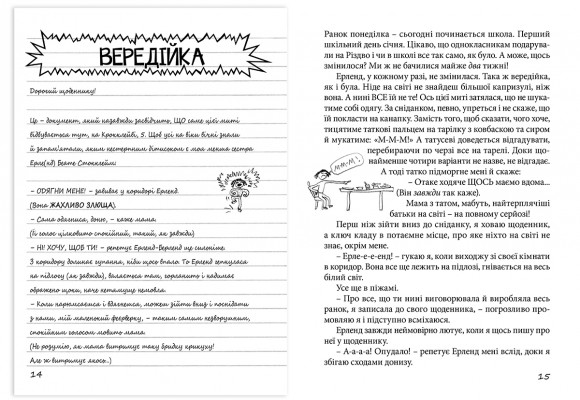 ВЕРЕДІЙКА
Дорогий щоденнику!
Це – документ, який назавжди засвідчить, ЩО саме цієї миті
відбувається тут, на Кроклейві, 5. Щоб усі на віки вічні знали
й запам'ятали, яким нестерпним бешкетом є моя менша сестра
Ерле(нд) Беате Стокклейв:
– ОДЯГНИ МЕНЕ! – завиває у коридорі Ерленд.
(Вона ЖАХЛИВО ЗЛЮЩА).
– Сама одягнися, доню, – каже мама.
(Її голос цілковито спокійний, такий, як завжди)
– НІ! ХОЧУ, ЩОБ ТИ! – репетує Ерленд-Верленд ще сильніше.
З коридору долинає гупання, ніби щось впало. То Ерленд гепнулася
на підлогу (як завжди), валяється там, горланить і кидає
ображено щоки, наче нетямуще немовля.
– Коли нарепетуєшся і вдягнешся, можеш зійти вниз і поснідати
з нами, мій маленький фейєрверку, – таким самим незворушним,
спокійним голосом мовить мама.
(Не розумію, як мама витримує таку бридку крикуху!
Але ж витримує якось..)
14
Ранок понеділка – сьогодні починається школа. Перший
шкільний день січня. Цікаво, що однокласникам подарува-
ли на Різдво і чи в школі все так само, як було. А може, щось
змінилося? Ми ж не бачилися майже два тижні!
Ерленд, у кожному разі, не змінилася. Така ж вередійка,
як і була. Ніде на світі не знайдеш більшої капризулі, ніж
вона. А нині ВСЕ їй не те! Ось цієї миті затялася, що не шука-
тиме собі одягу. За сніданком, певно, упреться і не скаже, що
їй покласти на канапку. Замість того, щоб сказати, чого хоче,
тицятиме таткові пальцем на тарілку з ковбаскою та сиром
й мукатиме: «М-М-М!» А татусеві доведеться відгадувати,
перебираючи по черзі все на тарелі. Доки що-
найменше чотири варіанти не назве, не відгадає.
А тоді татко підморгне мені й скаже:
– Отаке ходяче ЩОСЬ маємо вдома...
(Він завжди так каже).
Мама з татом, мабуть, найтерплячіші
батьки на світі – на повному серйозі!
М-М-М!
Перш ніж зійти вниз до сніданку, я ховаю щоденник,
а ключ кладу в потаємне місце, про яке ніхто на світі не
знає, окрім мене.
– Ерле-е-е-енд! – гукаю я, коли виходжу зі своєї кімнати
в коридор. Вона все ще лежить на підлозі, гнівається на весь
білий світ.
Усе ще в піжамі.
– Про все, що ти нині виговорювала й виробляла весь
ранок, я записала до свого щоденника, – погрозливо про-
мовляю я і підступно всміхаюся.
Ерленд завжди неймовірно лютує, коли я щось пишу про
неї у щоденнику.
– А-а-а-а! Опудало! – репетує Ерленд мені вслід, доки я
збігаю сходами донизу.
15